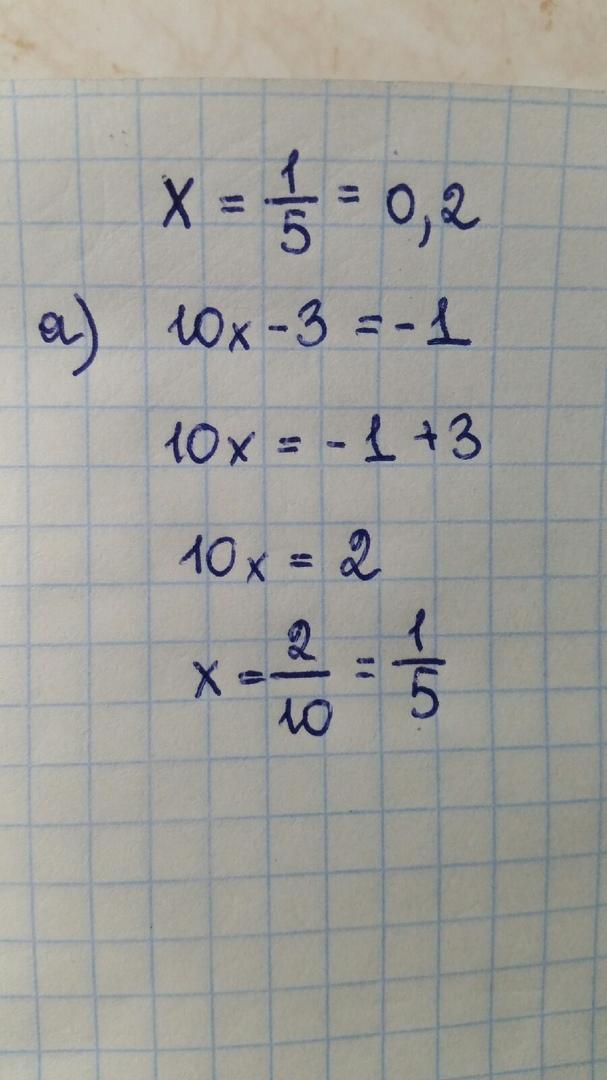 x = 1/5 = 0,2
а) 10x - 3 = -1
10x = -1 + 3
10x = 2
x = 2/10 = 1/5